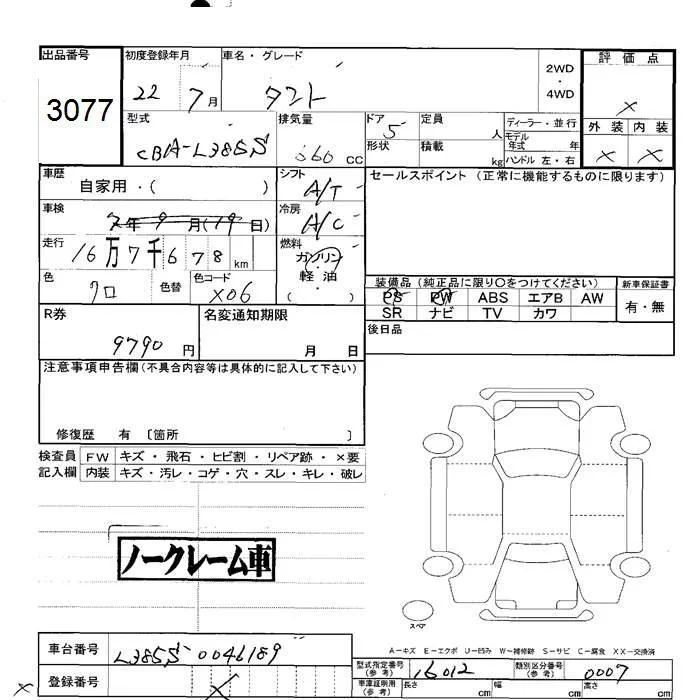 出品番号 初度登録年月 車名・グレード 2WD 評価点
3077 22 7月 タント ・4WD ×
型式 排気量 ドア 定員 ディーラー・並行 外装 内装
CBA-L385S 660 CC 5 人 モデル年式 年 × ×
形状 積載 kg ハンドル 左・右
車歴 シフト セールスポイント (正常に機能するものに限ります)
自家用・( ) A/T
車検 冷房
2年9月(19日) A/C
走行 燃料
16万7千678km ガソリン
・
軽油
( )
色 色替 色コード
クロ X06
装備品 (純正品に限り○をつけてください) 新車保証書
PS PW ABS エアB AW 有・無
SR ナビ TV カワ
R券 名変通知期限 後日品
9790円 月 日
注意事項申告欄(不具合内容等は具体的に記入して下さい)
修復歴 有 〔箇所 〕
検査員 FW キズ・飛石・ヒビ割・リペア跡・×要
記入欄 内装 キズ・汚レ・コゲ・穴・スレ・キレ・破レ
ノークレーム車
スペア
A-キズ E-エクボ U-凹み W-補修跡 S-サビ C-腐食 XX-交換済
車台番号 L385S-0046189
型式指定番号(参考) 16012 類別区分番号(参考) 0007
登録番号 ×
車庫証明用(参考) 長さ cm 幅 cm 高さ cm
×